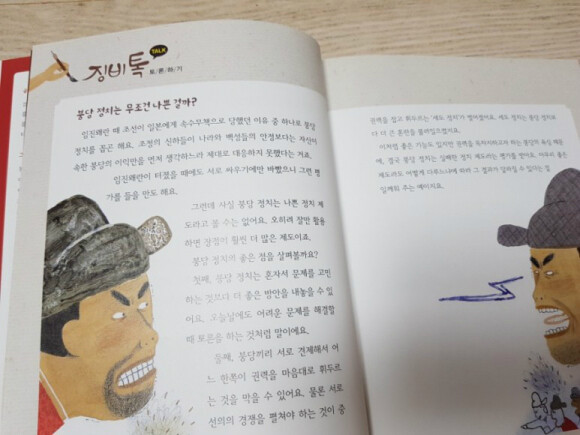 징비톡
TALK
토/론/하/기
붕당 정치는 무조건 나쁜 걸까?
임진왜란 때 조선이 일본에게 속수무책으로 당했던 이유 중 하나로 붕당
정치를 꼽곤 해요. 조정의 신하들이 나라와 백성들의 안정보다는 자신이
속한 붕당의 이익만을 먼저 생각하느라 제대로 대응하지 못했다는 거죠.
임진왜란이 터졌을 때에도 서로 싸우기에만 바빴으니 그런 평
가를 들을 만도 해요.
그런데 사실 붕당 정치는 나쁜 정치 제
도라고 볼 수는 없어요. 오히려 잘만 활용
하면 장점이 훨씬 더 많은 제도이죠.
붕당 정치의 좋은 점을 살펴볼까요?
첫째, 붕당 정치는 혼자서 문제를 고민
하는 것보다 더 좋은 방안을 내놓을 수 있
어요. 오늘날에도 어려운 문제를 해결할
때 토론을 하는 것처럼 말이에요.
둘째, 붕당끼리 서로 견제해서 어
느 한쪽이 권력을 마음대로 휘두르
는 것을 막을 수 있어요. 물론 서로
선의의 경쟁을 펼쳐야 하는 것이 중
권력을 잡고 휘두르는 '세도 정치'가 벌어졌어요. 세도 정치는 붕당 정치보
다 더 큰 혼란을 불러일으켰어요.
이처럼 좋은 기능도 있지만 권력을 독차지하고자 하는 붕당의 욕심 때문
에, 결국 붕당 정치는 실패한 정치 제도라는 평가를 받아요. 아무리 좋은
제도라도 어떻게 다루느냐에 따라 그 결과가 달라질 수 있다는 걸
일깨워 주는 예이지요.